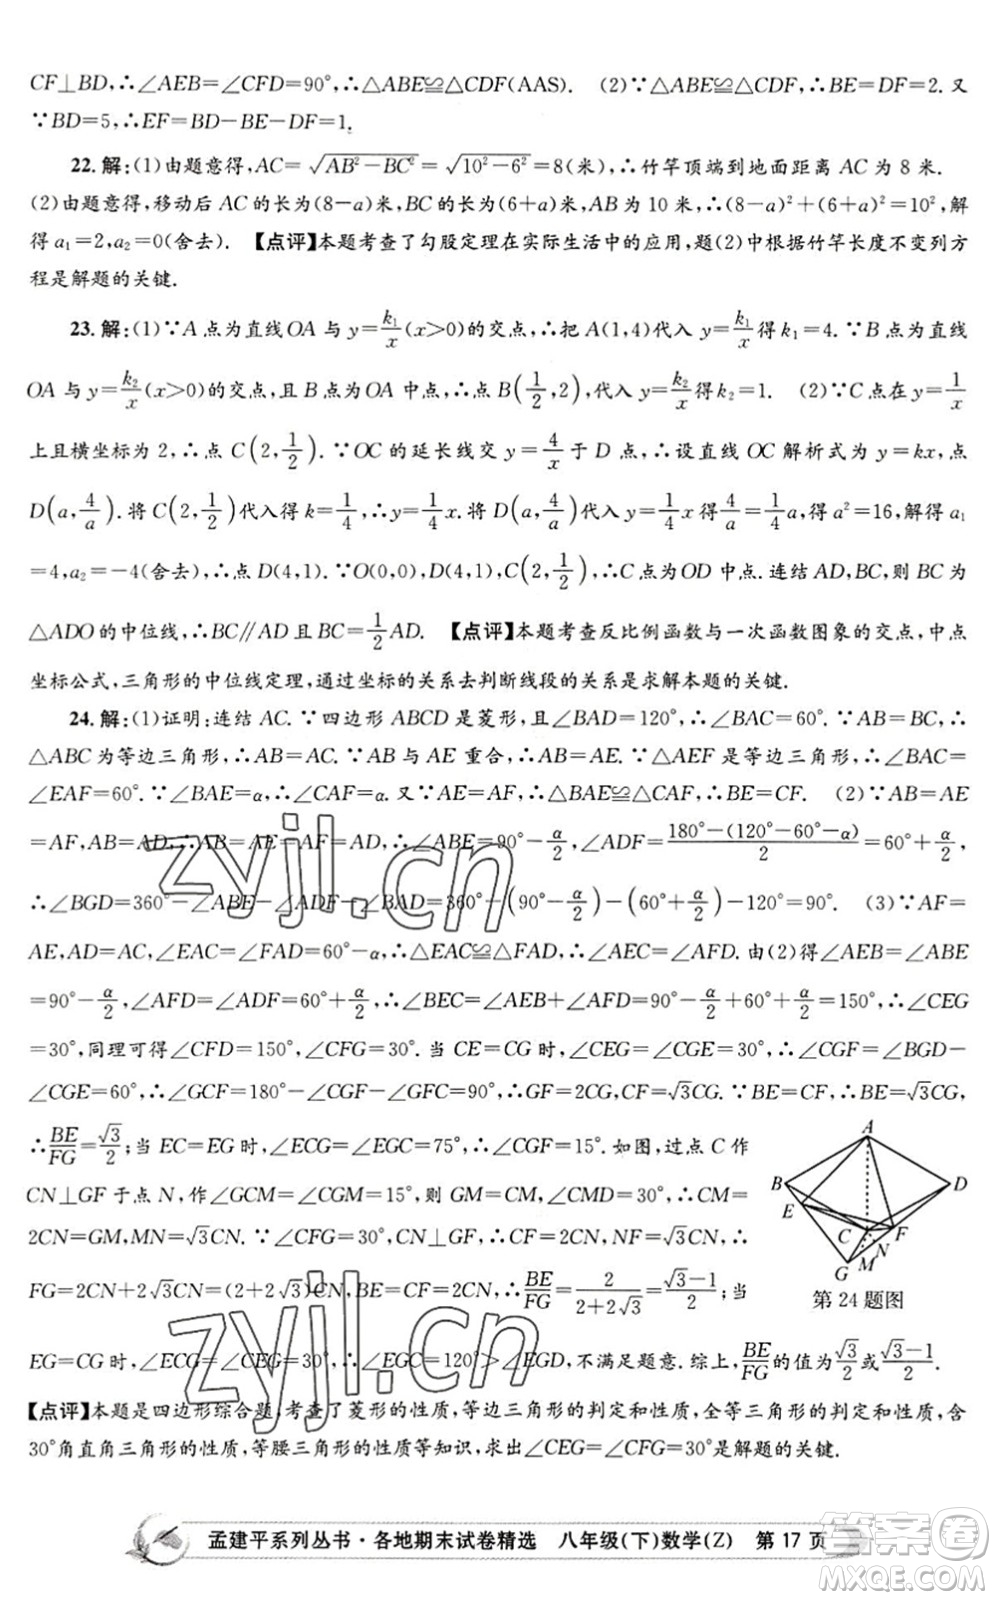 CF⊥BD,∴∠AEB=∠CFD=90°,∴△ABE≌△CDF(AAS). (2)∵△ABE≌△CDF,∴BE=DF=2.又
∵BD=5,∴EF=BD-BE-DF=1.
22.解:(1)由题意得,AC=√(AB²-BC²)=√(10²-6²)=8(米),∴竹竿顶端到地面距离 AC 为 8 米.
(2)由题意得,移动后 AC 的长为(8-a)米,BC 的长为(6+a)米,AB 为 10 米,∴(8-a)²+(6+a)²=10²,解
得 a₁=2,a₂=0(舍去). 【点评】本题考查了勾股定理在实际生活中的应用,题(2)中根据竹竿长度不变列方
程是解题的关键.
23.解:(1)∵A 点为直线OA 与 y=k₁/x(x>0)的交点,∴把 A(1,4)代入 y=k₁/x得 k₁=4.∵B 点为直线
OA 与 y=k₂/x(x>0)的交点,且 B 点为OA 中点,∴点 B(1/2,2),代入 y=k₂/x得 k₂=1. (2)∵C 点在 y=1/x
上且横坐标为 2,∴点 C(2,1/2).∵OC 的延长线交 y=4/x于 D 点,∴设直线 OC 解析式为 y=kx,点
D(a,4/a).将 C(2,1/2)代入得 k=1/4,∴y=1/4x.将 D(a,4/a)代入 y=1/4x 得4/a=1/4a,得 a²=16,解得 a₁
=4,a₂=-4(舍去),∴点 D(4,1).∵O(0,0),D(4,1),C(2,1/2),∴C 点为 OD 中点.连结 AD,BC,则 BC 为
△ADO 的中位线,∴BC∥AD 且 BC=1/2AD. 【点评】本题考查反比例函数与一次函数图象的交点,中点
坐标公式,三角形的中位线定理,通过坐标的关系去判断线段的关系是求解本题的关键.
24.解:(1)证明:连结 AC.∵四边形 ABCD 是菱形,且∠BAD=120°,∴∠BAC=60°.∵AB=BC,∴
△ABC 为等边三角形,∴AB=AC.∵AB 与 AE 重合,∴AB=AE.∵△AEF 是等边三角形,∴∠BAC=
∠EAF=60°.∵∠BAE=α,∴∠CAF=α.又∵AE=AF,∴△BAE≌△CAF,∴BE=CF. (2)∵AB=AE
=AF,AB=AD,∴AB=AE=AF=AD,∴∠ABE=90°-α/2,∠ADF=(180°-(120°-60°-α))/2=60°+α/2,
∴∠BGD=360°-∠ABE-∠ADF-∠BAD=360°-(90°-α/2)-(60°+α/2)-120°=90°. (3)∵AF=
AE,AD=AC,∠EAC=∠FAD=60°-α,∴△EAC≌△FAD,∴∠AEC=∠AFD.由(2)得∠AEB=∠ABE
=90°-α/2,∠AFD=∠ADF=60°+α/2,∴∠BEC=∠AEB+∠AFD=90°-α/2+60°+α/2=150°,∴∠CEG
=30°,同理可得∠CFD=150°,∠CFG=30°.当 CE=CG 时,∠CGE=∠CEG=30°,∴∠CGF=∠BGD-
∠CGE=60°,∴∠GCF=180°-∠CGF-∠GFC=90°,∴GF=2CG,CF=√3CG.∵BE=CF,∴BE=√3CG,
∴BE/FG=√3/2;当 EC=EG 时,∠ECG=∠EGC=75°,∴∠CGF=15°.如图,过点 C 作
CN⊥GF 于点 N,作∠GCM=∠CGM=15°,则 GM=CM,∠CMD=30°,∴CM=
2CN=GM,MN=√3CN.∵∠CFG=30°,CN⊥GF,∴CF=2CN,NF=√3CN,∴
FG=2CN+2√3CN=(2+2√3)CN,∴BE/FG=2/(2+2√3)=(√3-1)/2;当
EG=CG 时,∠ECG=∠CEG=30°,∴∠EGC=120°>∠EGD,所以不满足题意.综上,BE/FG的值为√3/2或(√3-1)/2.
【点评】本题是四边形综合题,考查了菱形的性质,等边三角形的判定和性质,全等三角形的判定和性质,含
30°角直角三角形的性质,等腰三角形的性质等知识,求出∠CEG=∠CFG=30°是解题的关键.
A
B
D
E
C
F
N
M
G
第 24 题图
zyjl.cn
zyjl.cn
孟建平系列丛书·各地期末试卷精选 八年级(下)数学(Z) 第 17 页
答案圈
MXQE.COM